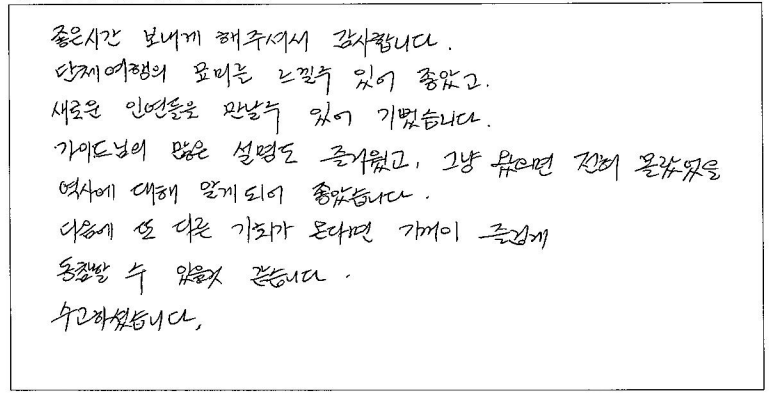 좋은시간 보내게 해주셔서 감사합니다.
단체여행의 묘미를 느낄수 있어 좋았고.
새로운 인연들을 만날수 있어 기뻤습니다.
가이드님의 많은 설명도 즐거웠고, 그냥 왔으면 전혀 몰랐었을
역사에 대해 알게되어 좋았습니다.
다음에 또 다른 기회가 온다면 기꺼이 즐겁게
동참할 수 있을것 같습니다.
수고하셨습니다.